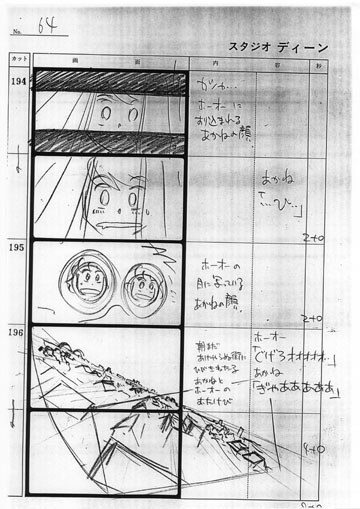 No. 64
スタジオ ディーン
カット 画 面 内 容 秒
194
ガシャ…
ホーオーに
おり込まれる
あかねの顔.
あかね
「…び…」
2+0
195
ホーオーの
目に写っている
あかねの顔.
2+0
196
朝まだ
ひびきわたる
あかねと
ホーオーの
おたけび
ホーオー
「でげろオオオオ…」
あかね
「ぎゃあああああ」
4+0